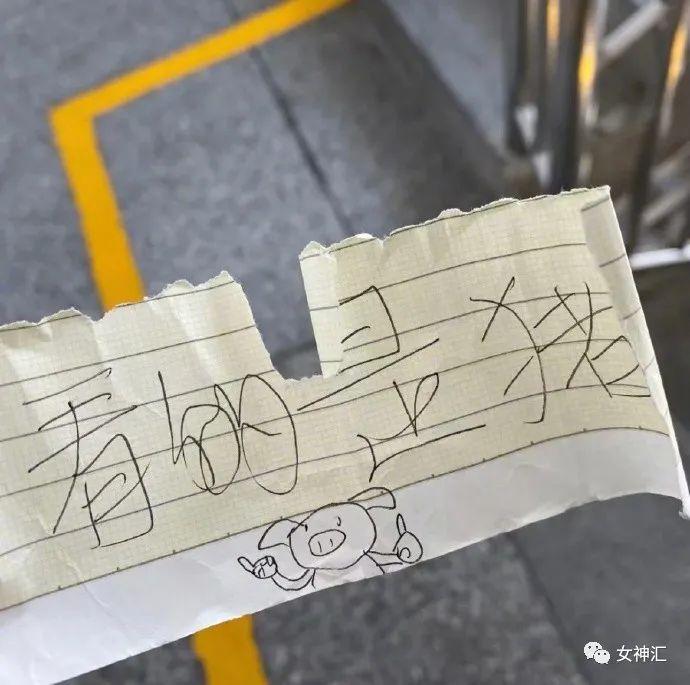 看的是猪
女神汇